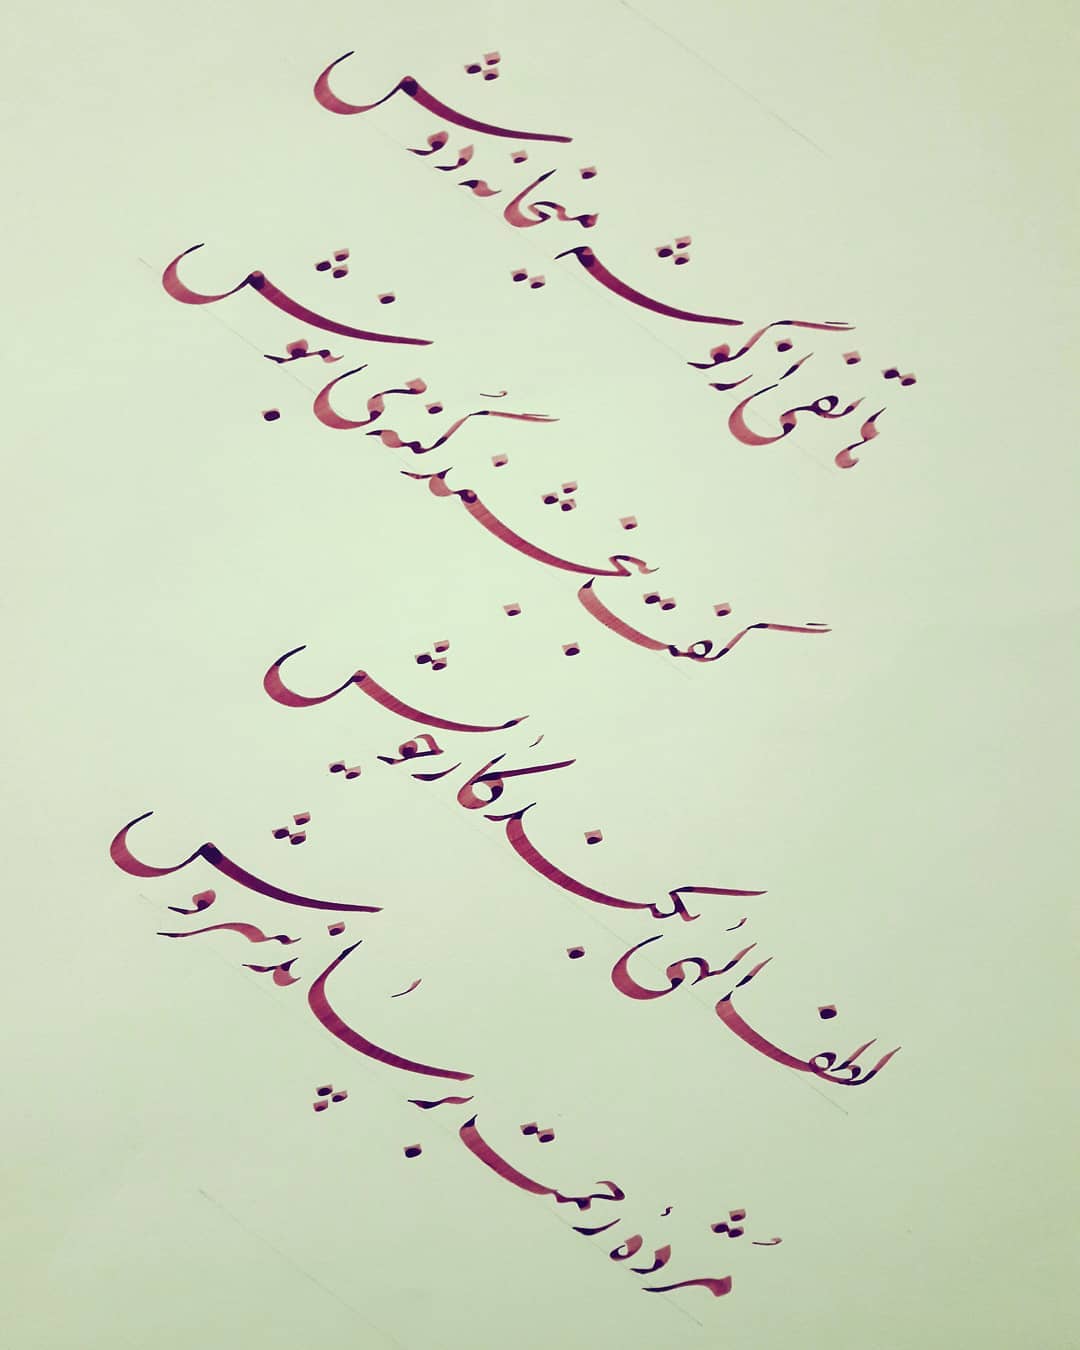 هاتفی از گوشه میخانه دوش
گفت ببخشند گنه می بنوش
لطف الهی بکند کار خویش
مژدهٔ رحمت برساند سروش